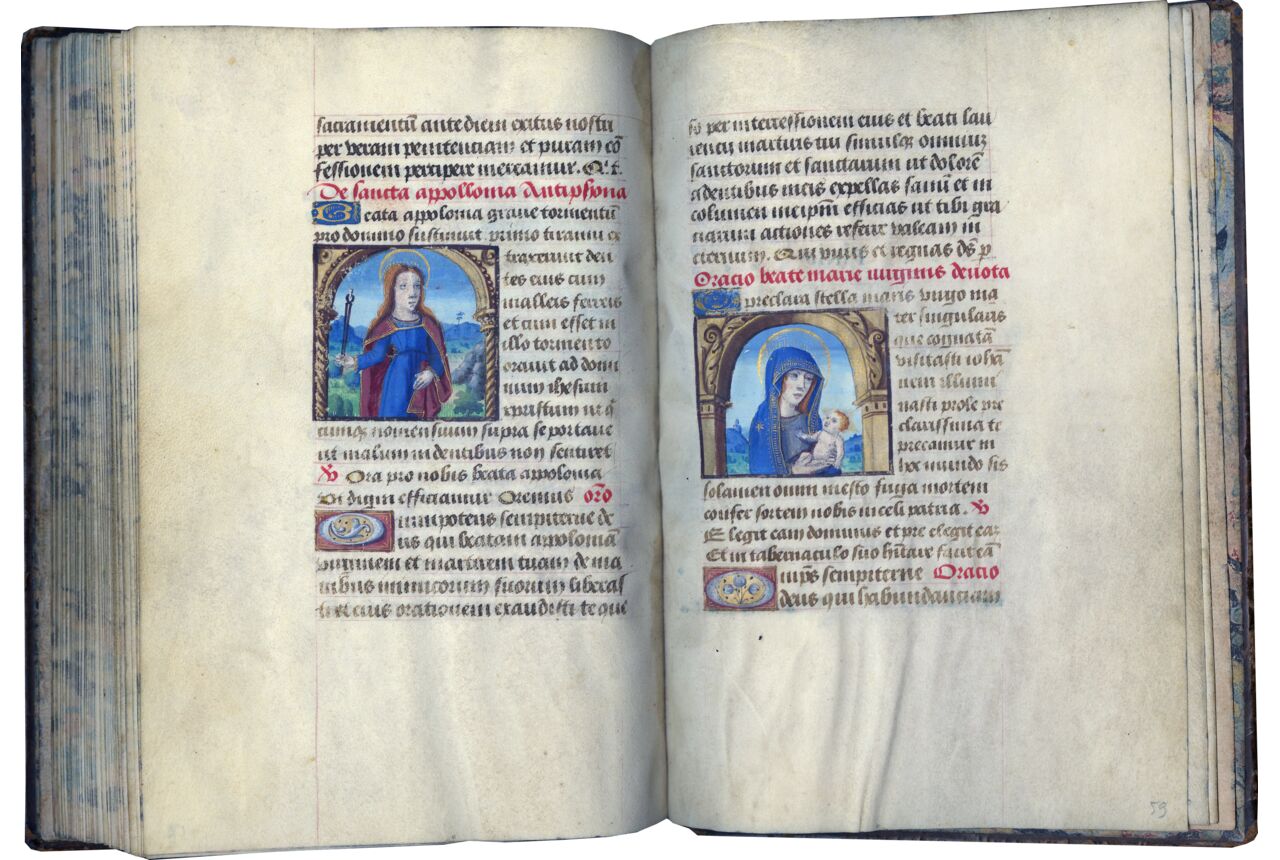 sacramentū ante diem exitus nostri
per veram penitentiam et puram cō
fessionem percipere mereamur. Q. t.
De sancta appollonia Antiphona
Beata appolonia grave tormentū
pro domino sustinuit primo tiranni ex
traxerunt den
tes eius cum
malleis ferreis
et cum esset in
illo tormento
oravit ad domi
num ihesum
xpristum ut q̄
cumq nomen suum supra se portave
rit malum in dentibus non sentiret
℣ Ora pro nobis beata appolonia
Ut digni efficiamur Oremus oro
Omnipotens sempiterne de
us qui beatam appoloniā
virginem et martirem tuam de ma
nibus inimicorum suorum liberas
ti et eius orationem exaudisti te que
so per intercessionem eius et beati lau
rencii martiris tui simulq omniuz
sanctorum et sanctarum ut dolorē
a dentibus meis expellas sanū et in
columen me ipm̄ efficias ut tibi gra
tiarum actiones referre valeam in
eternum. Qui vivis et regnas ds̄ p
Oracio beate marie virginis devota
O preclara stella maris virgo ma
ter singularis
que cognatā
visitasti iohā
nem illumi
nasti prole pre
clarissima te
precamur in
hoc mundo sis
solamen omni mesto fuga mortem
confer sortem nobis in celi patria. ℣
Elegit eam dominus et pre elegit eaz
Et in tabernaculo suo hītare facit eā
Omps̄ sempiterne Oracio
deus qui habundanciam
59